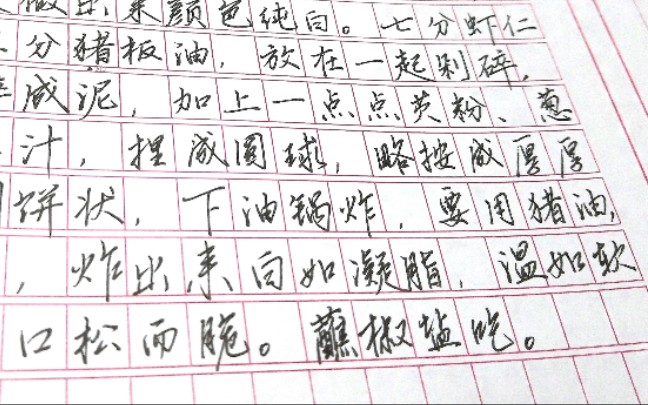 做出来颜色纯白。七分虾仁
分猪板油，放在一起剁碎，
成泥，加上一点点芡粉、葱
汁，捏成圆球，略按成厚厚
饼状，下油锅炸，要用猪油，
，炸出来白如凝脂，温如软
口松而脆。蘸椒盐吃。